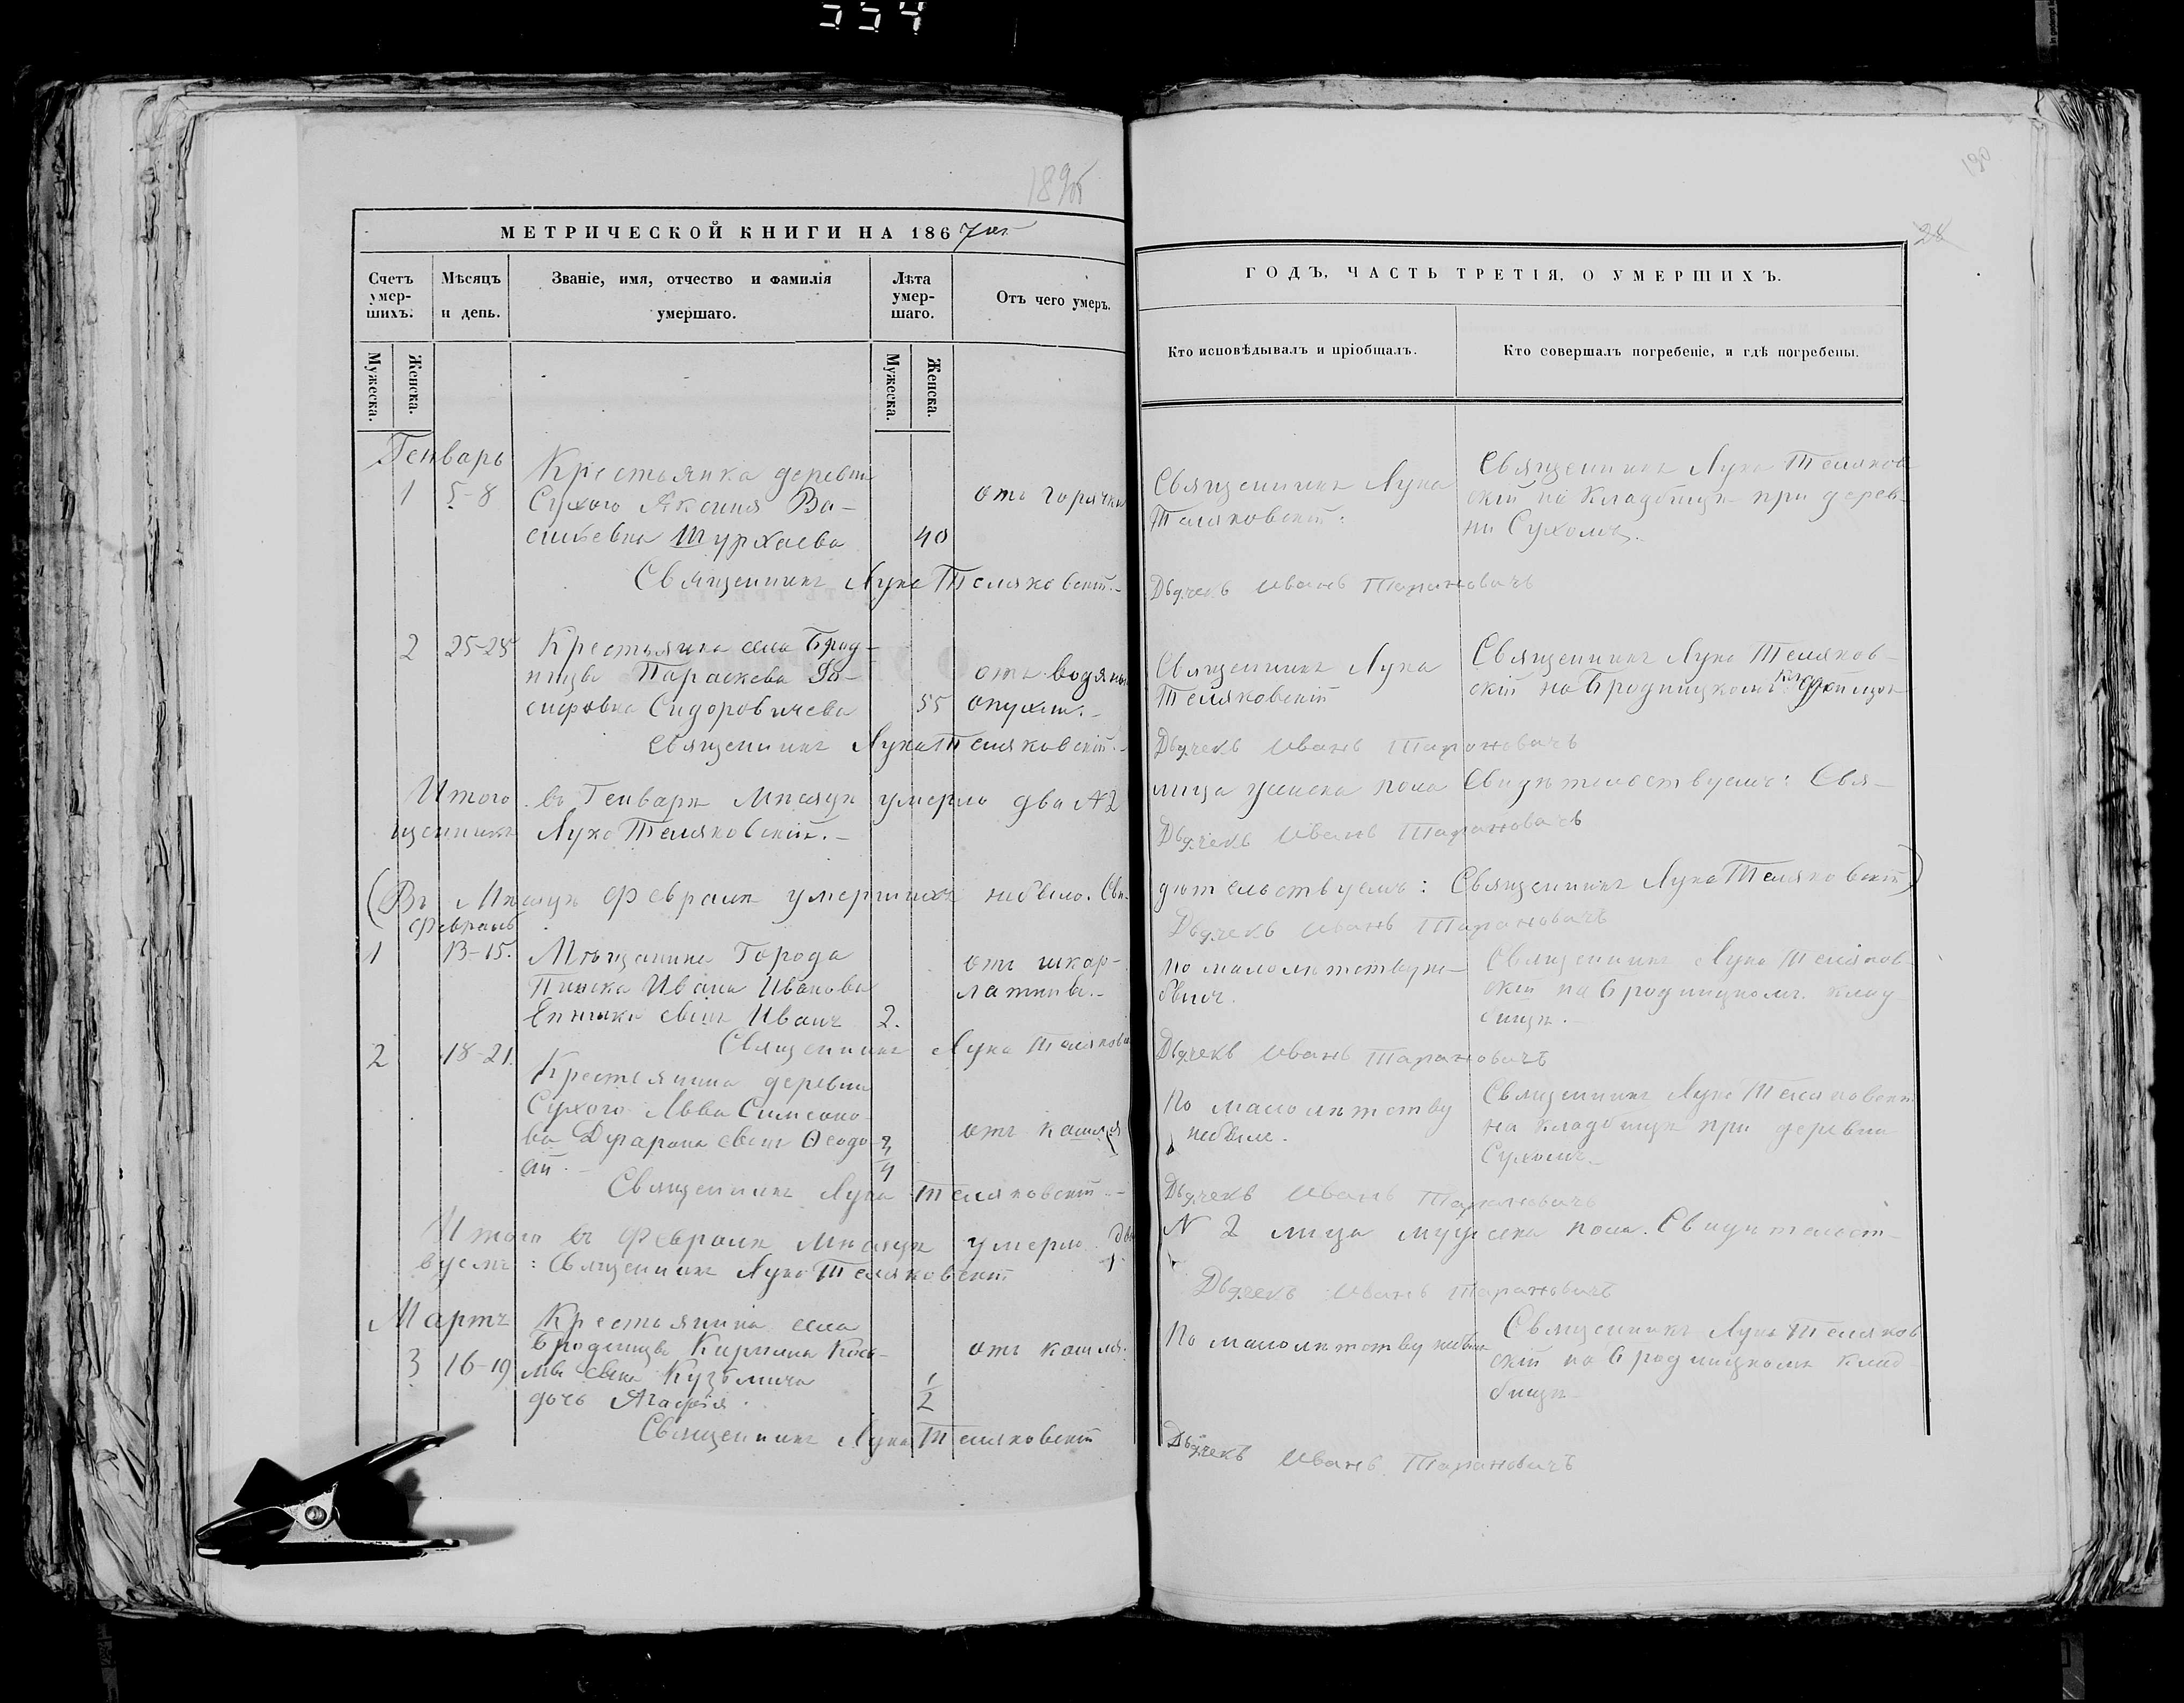 554
189об
МЕТРИЧЕСКОЙ КНИГИ НА 1867й
Счетъ умер-шихъ.
Мѣсяцъ и день.
Званіе, имя, отчество и фамилія умершаго.
Лѣта умер-шаго.
Отъ чего умеръ.
Мужеска.
Женска.
Мужеска.
Женска.
Генварь
Крестьянка деревни
1 5-8 Сухого Аксинія Ва- отъ горячки
сильевна Турхаева 40
Священникъ Лука Теляковскій.-
2 25-28 Крестьянка села Брод-
ницы Параскева отъ водяной
сифовна Сидоровичева 55 опухли.-
Священникъ Лука Теляковскій.-
Итого въ Генварѣ Мѣсяцѣ умерло два №2
щенникъ Лука Теляковскій.-
(Въ Мѣсяцѣ Февралѣ умершихъ небыло. Сви-
Февраль
1 13-15. Мѣщанина Города отъ шкар-
Пинска Ивана Иванова латины.-
сынъ Иванъ 2.
Священникъ Лука Теляковс
2 18-21. Крестьянина деревни
Сухого Льва Симеоно-
ва сынъ Ѳеодо- 3/4 отъ кашля
сій.-
Священникъ Лука Теляковскій.-
Итого въ Февралѣ Мѣсяцѣ умерло два
вуемъ: Священникъ Лука Теляковскій
Мартъ Крестьянина села
Бродницы Кирилла Кось- отъ кашля.
3 16-19 мы сына Кузьмича
дочь Агафія. 1/2
Священникъ Лука Теляковскій
190
28
ГОДЪ, ЧАСТЬ ТРЕТІЯ, О УМЕРШИХЪ.
Кто исповѣдывалъ и пріобщалъ.
Кто совершалъ погребеніе, и гдѣ погребены.
Священникъ Лука Священникъ Лука Теляков
Теляковскій. скій на Кладбищѣ при дерев-
ни Сухомъ.
Дьячекъ Иванъ Тарановичъ
Священникъ Лука Священникъ Лука Теляков-
Теляковскій скій на Бродницкомъ
Дьячекъ Иванъ Тарановичъ
лица женска пола Свидѣтельствуемъ: Свя-
Дьячекъ Иванъ Тарановичъ
дѣтельствуемъ: Священникъ Лука Теляковскій)
Дьячекъ Иванъ Тарановичъ
По малолѣтству не- Священникъ Лука Теляков-
былъ. скій на Бродницкомъ клад-
бищѣ.-
Дьячекъ Иванъ Тарановичъ
По малолѣтству Священникъ Лука Теляковскій
небылъ. на кладбищѣ при деревни
Сухомъ.-
Дьячекъ Иванъ Тарановичъ
№ 2 лица мужеска пола. Свидѣтельст-
Дьячекъ Иванъ Тарановичъ
По малолѣтству небыла Священникъ Лука Теляков
скій на Бродницкомъ клад-
бищѣ-
Дьячекъ Иванъ Тарановичъ